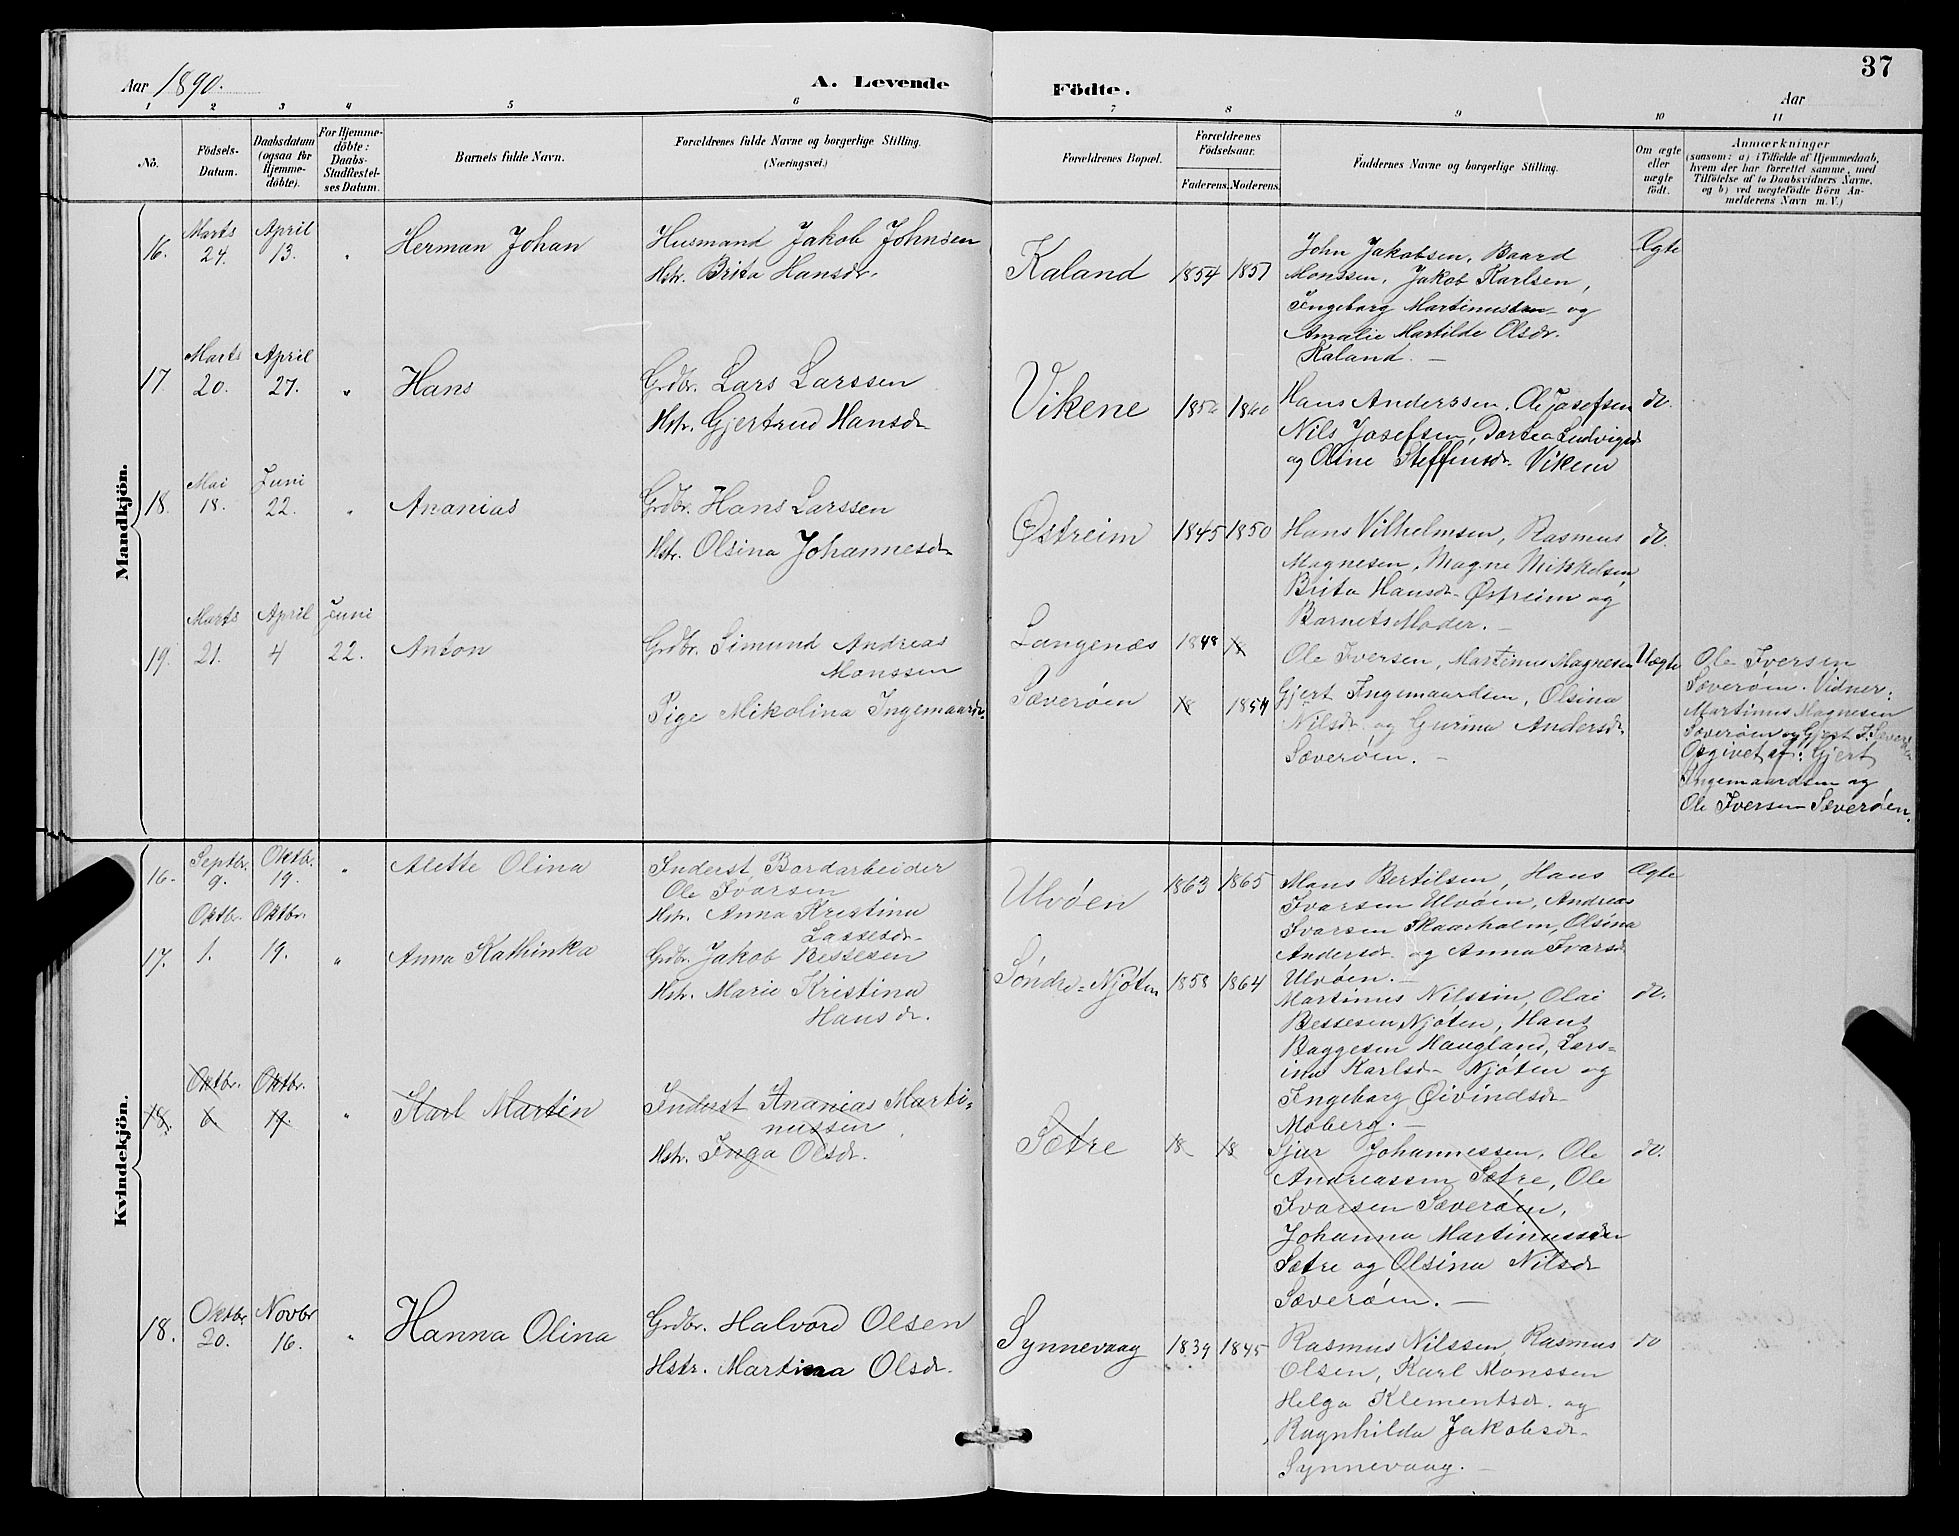 37
Aar 1890. A. Levende Födte. Aar
1 2 3 4 5 6 7 8 9 10 11
No. Födsels-Datum. Daabsdatum (ogsaa for Hjemme-döbte). For Hjemme-döbte: Daabs-Stadfæstel-ses Datum. Barnets fulde Navn. Forældrenes fulde Navne og borgerlige Stilling. (Næringsvei.) Forældrenes Bopæl. Forældrenes Födselsaar. Faderens. Moderens. Faddernes Navne og borgerlige Stilling. Om ægte eller uægte födt.
Anmærkninger
(saasom: a) i Tilfælde af Hjemmedaab,
hvem der har forrettet samme, med
Tilföielse af to Daabsvidners Navne,
og b) ved uægtefödte Börn An-
melderens Navn m. V.)
Mandkjön.
16. Marts 24. April 13. " Herman Johan
Husmand Jakob Johnsen
Hstr. Brita Hansdr.
Kaland 1854 1857
John Jakobsen, Baard
Monssen, Jakob Karlsen,
Ingeborg Martinusdtr og
Amalie Martilde Olsdr.
Kaland. —
Ægte
17. Marts 20. April 27. " Hans
Grdbr. Lars Larssen
Hstr. Gjertrud Hansdr
Vikene 1860
Hans Anderssen, Ole Josefsen
Nils Josefsen, Dortea Ludvigsd
og Oline Steffensdr. Vikene
do.
18. Mai 18. Juni 22. " Ananias
Grdbr. Hans Larssen
Hstr. Olsina Johannesdr
Østreim 1845 1850
Hans Vilhelmsen, Rasmus
Magnesen, Magne Mikkelsen
Brita Hansdr Østreim og
Barnets Moder. —
do.
19. Marts 21. April 4 Juni 22. Anton
Grdbr. Simund Andreas
Monssen
Pige Mikolina Ingemaardr.
Langenæs 1848 18
Sæverøen 18 1854
Ole Iversen, Martinus Magnesen
Gjert Ingemaardsen, Olsina
Nilsdr. og Gurina Andersdr
Sæverøen. —
Uægte
Ole Iversen
Sæverøen. Vidner:
Martinus Magnesen
Sæverøen og Gjert I. Sæverøen
Opgivet af: Gjert
Ingemaardsen og
Ole Iversen Sæverøen.
Kvindekjön.
16. Septbr. 9. Oktbr. 19. " Alette Olina
Inderst, Bordarbeider
Ole Ivarsen
Hstr. Anna Kristina
Lassesdr
Ulvøen 1863 1865
Mons Bertilsen, Hans
Ivarsen Ulvøen, Andreas
Ivarsen Skaarholm, Olsina
Andersdr og Anna Ivarsd
Ulvøen. —
Ægte
17. Oktbr. 1. Oktbr. 19. " Anna Kathinka
Grdbr. Jakob Bessesen
Hstr. Marie Kristina
Hansdr.
Søndre-Njøten 1858 1864
Martinus Nilssen, Olai
Bessesen Njøten, Hans
Baggesen Haugland, Lars-
ina Karlsdr Njøten og
Ingeborg Øivindsdr
Moberg. —
do.
18. Oktbr. 6 Oktbr. 17. " Karl Martin
Inderst Ananias Marti-
nussen
Hstr. Inga Olsdr.
Sætre 18 18
Sjur Johannessen, Ole
Andreassen Sætre, Ole
Ivarsen Sæverøen,
Johanna Martinussdr
Sætre og Olsina Nilsdr
Sæverøen. —
do.
18. Oktbr 20. Novbr 16. " Hanna Olina
Grdbr. Halvord Olsen
Hstr. Martina Olsdr.
Synnevaag 1839 1845
Rasmus Nilssen, Rasmus
Olsen, Karl Monssen
Helga Klementsdr. og
Ragnhilda Jakobsdr
Synnevaag. —
do